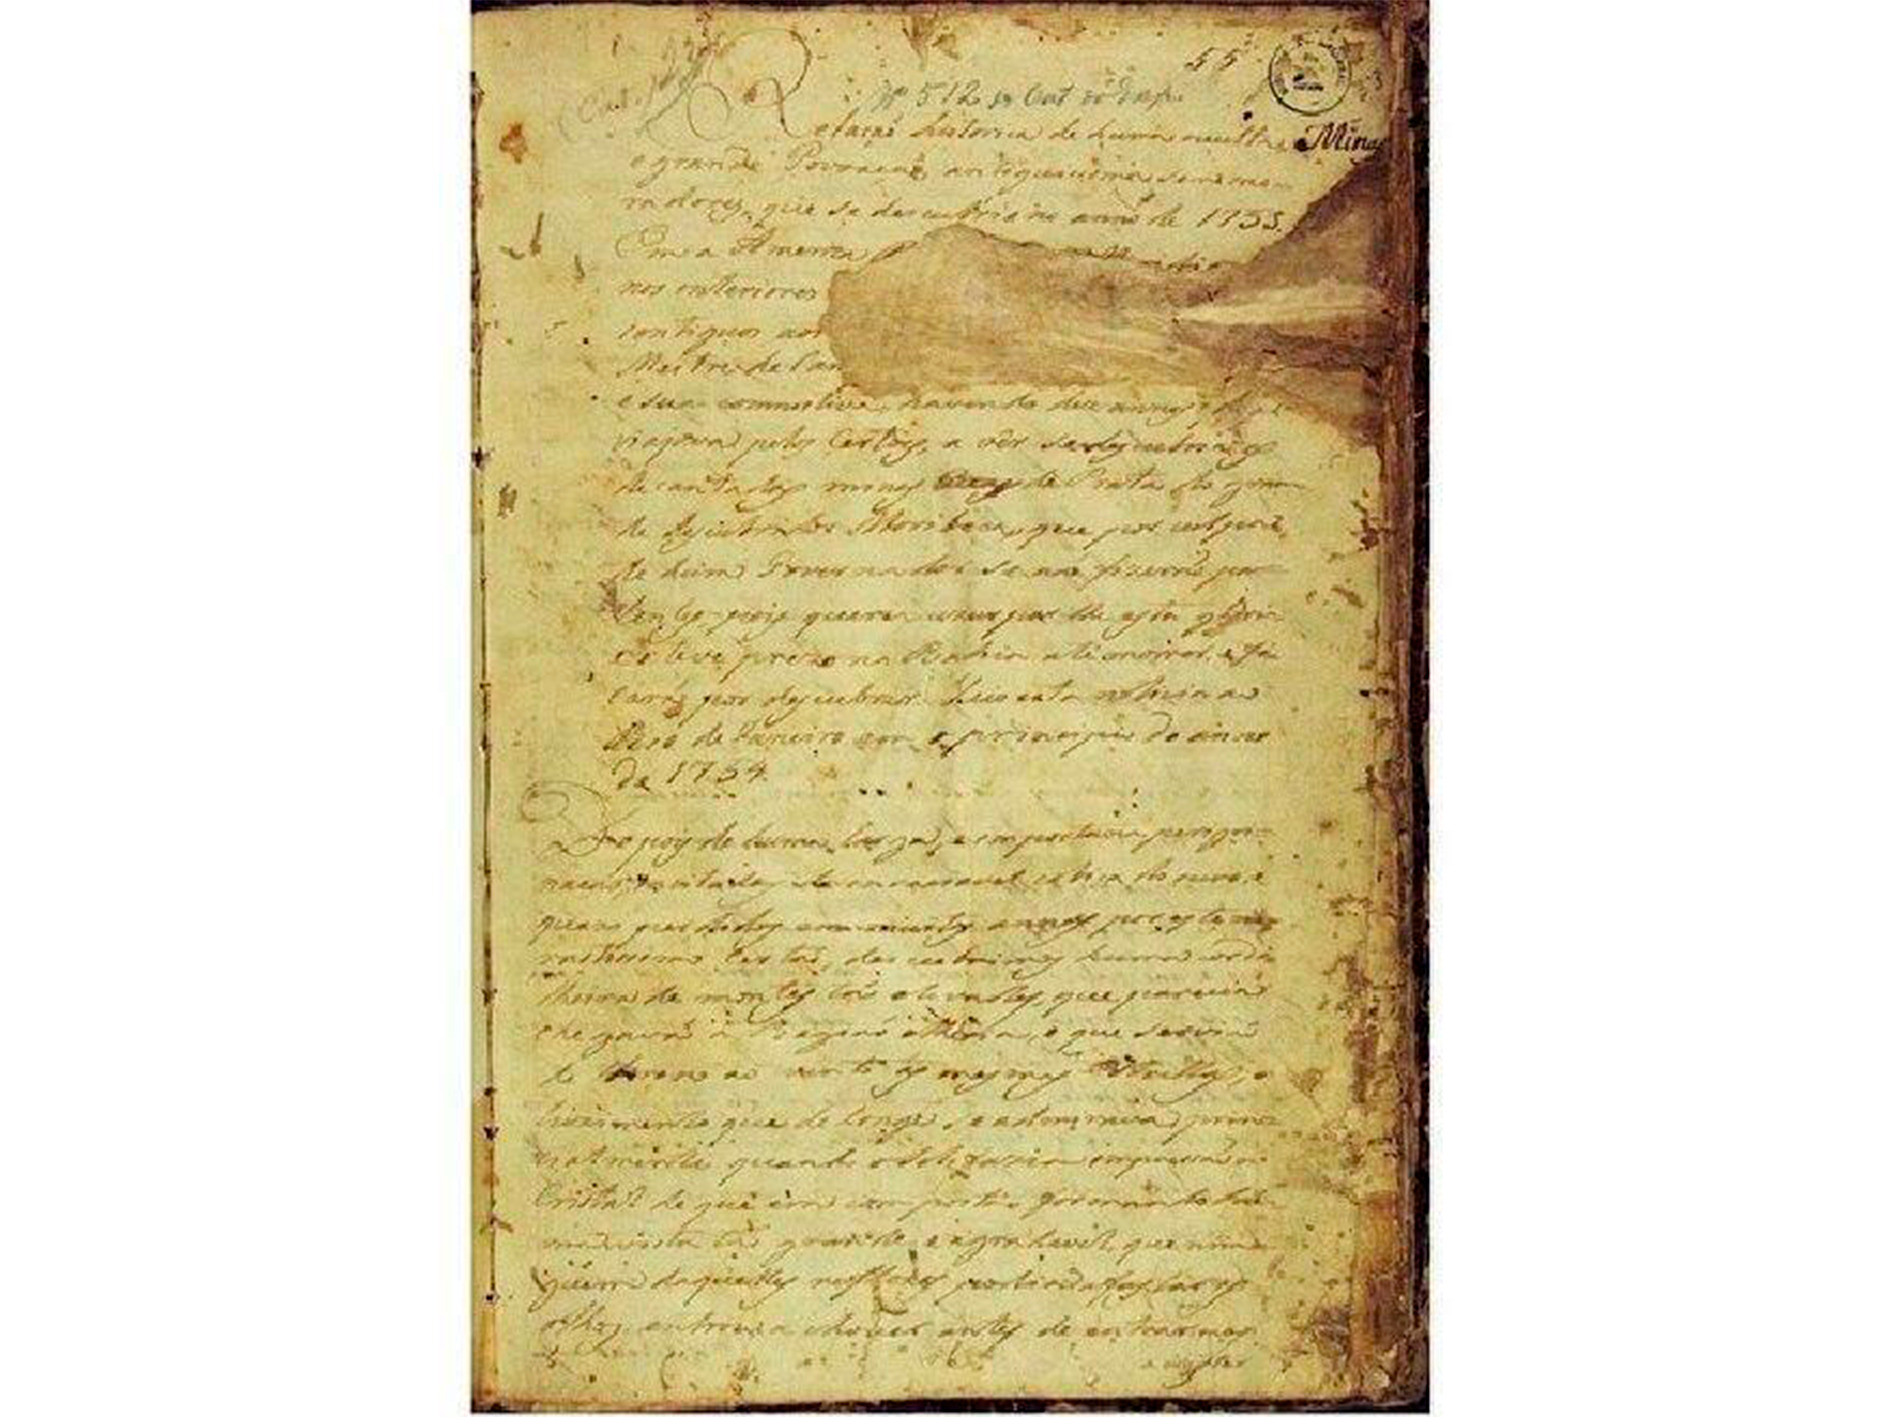 55
Nº 512
Minas
Relação historica de huma occulta,
e grande Povoação, antiquissima sem mo-
radores, que se descubrio no anno de 1753.
Em a America
nos interiores
contiguos aos
Mestre de Can
e sua comitiva, havendo dez annos, q
viajava pelos Certões, a vêr se descubria as
decantadas minas de Prata do gran-
de descubridor Moribeca, que por culpa
de hum Governador se não fizerão pa-
tentes, pois queria uzurparlhe esta gloria
e o teve prezo na Bahia até morrer, e fi-
carão por descubrir. Veio esta noticia ao
Rio de Janeiro em o principio do anno
de 1754.
Depois de huma larga, e importuna peregri-
nação, incitados da insaciavel cobiça do ouro, e
quasi perdidos em muitos annos por este vas-
tissimo Certão, descubrimos huma cordi-
lheira de montes tão elevados, que parecia
chegavão à Região etherea, e que servião
de throno ao vento, às mesmas Estrellas; o
luzimento que de longe se admirava, princi-
palmente quando o Sol fazia impressão no
Cristal de que era composta, formando huma
vista tão grande, e agradavel, que nin-
guem daquelles reflexos podia afastar os
olhos: entrou a chover antes de entrarmos